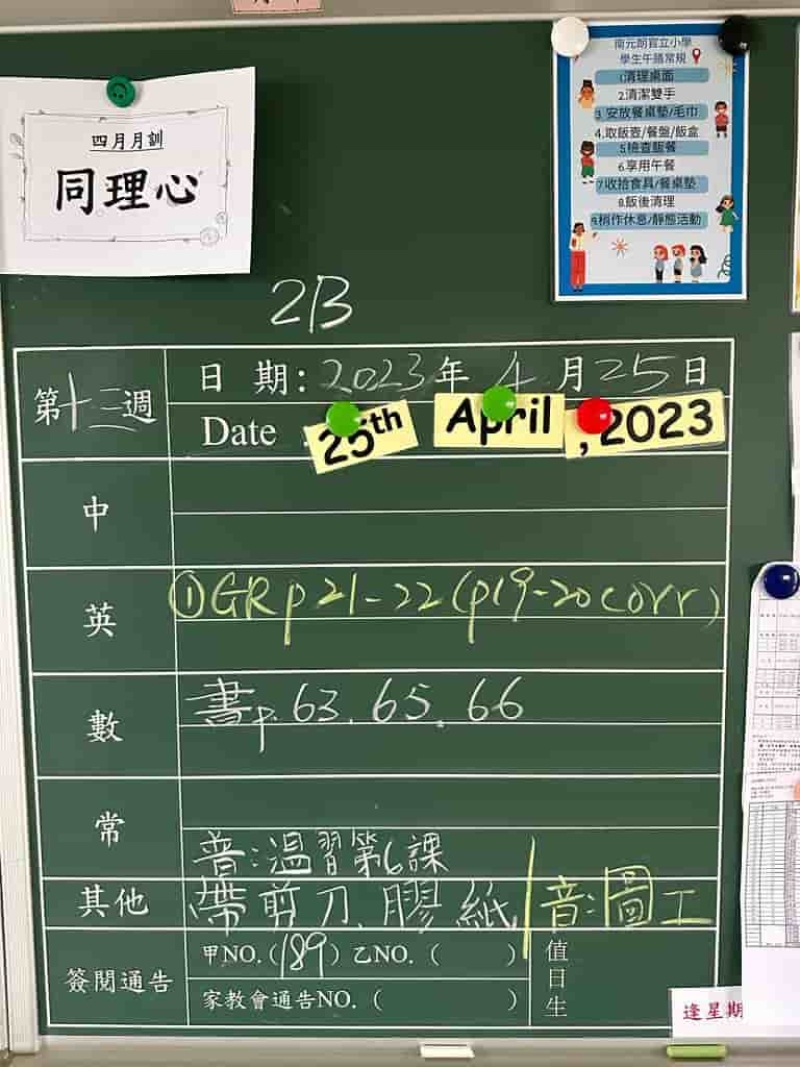 四月月訓
同理心
南元朗官立小學
學生午膳常規
1.清理桌面
2.清潔雙手
3.安放餐桌墊/毛巾
4.取飯壺/餐盤/飯盒
5.檢查飯餐
6.享用午餐
7.收拾食具/餐桌墊
8.飯後清理
9.稍作休息/靜態活動
2B
第十三週
日 期: 2023年 4月25日
Date 25th April, 2023
中
英
①GR p21-22 (p19-20 corr)
數
書p. 63. 65. 66
常
普:温習第6課
其他
帶剪刀.膠紙
音:圖工
簽閱通告
甲NO.(189) 乙NO. ( )
家教會通告NO. ( )
值日生
逢星期